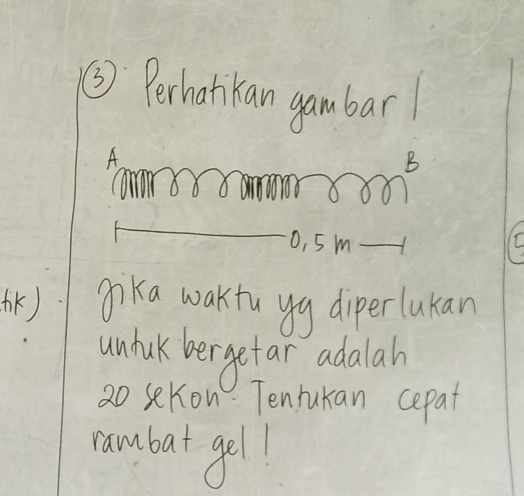 ③ Perhatikan gambar !
A B
0,5 m
tik)
Jika waktu yg diperlukan
untuk bergetar adalah
20 sekon. Tentukan cepat
rambat gel !